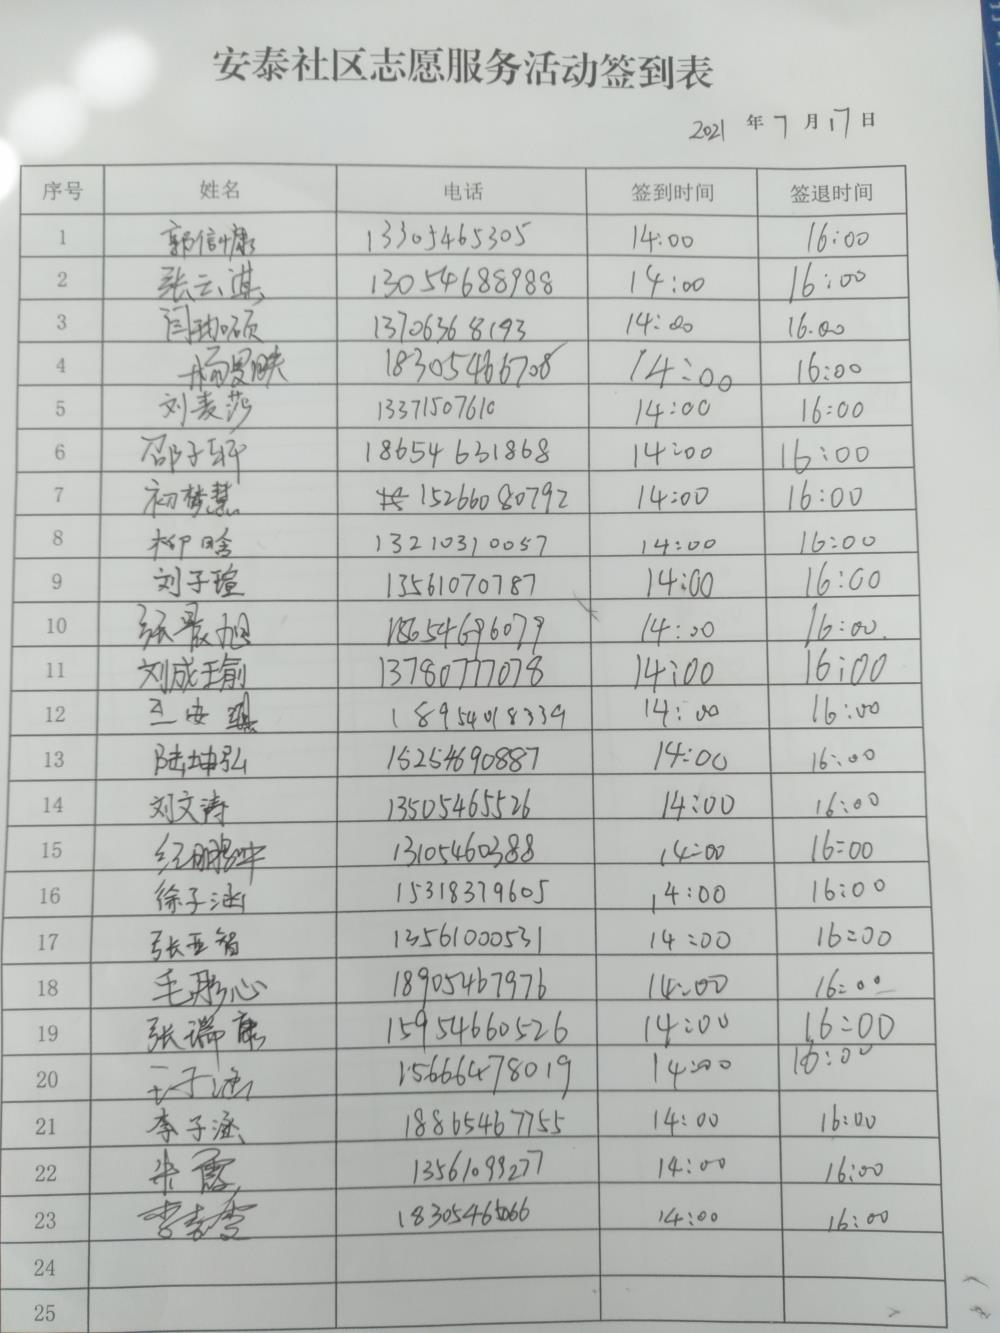 安泰社区志愿服务活动签到表
2021 年 7 月 17 日
序号 姓名 电话 签到时间 签退时间
1 郭信慷 13305465305 14:00 16:00
2 张云淇 13054688988 14:00 16:00
3 闫 硕 13706368193 14:00 16.00
4 杨曼映 18305466708 14:00 16:00
5 刘麦莎 13371507610 14:00 16:00
6 邵子轩 18654631868 14:00 16:00
7 初梦慧 15266080792 14:00 16:00
8 柳晗 13210310057 14:00 16:00
9 刘子瑄 13561070787 14:00 16:00
10 张晨旭 18654696079 14:00 16:00.
11 刘成瑜 13780777078 14:00 16:00
12 王安琪 18954018339 14:00 16:00
13 陆坤弘 15254690887 14:00 16:00
14 刘文涛 13505465526 14:00 16:00
15 13105460388 14:00 16:00
16 徐子涵 15318379605 14:00 16:00
17 张亚智 13561000531 14:00 16:00
18 毛彤心 18905467976 14:00 16:00
19 张瑞康 15954660526 14:00 16:00
20 王子涵 15666478019 14:00 16:00
21 李子涵 18865467755 14:00 16:00
22 朱霞 13561099277 14:00 16:00
23 李 雪 18305465066 14:00 16:00
24
25